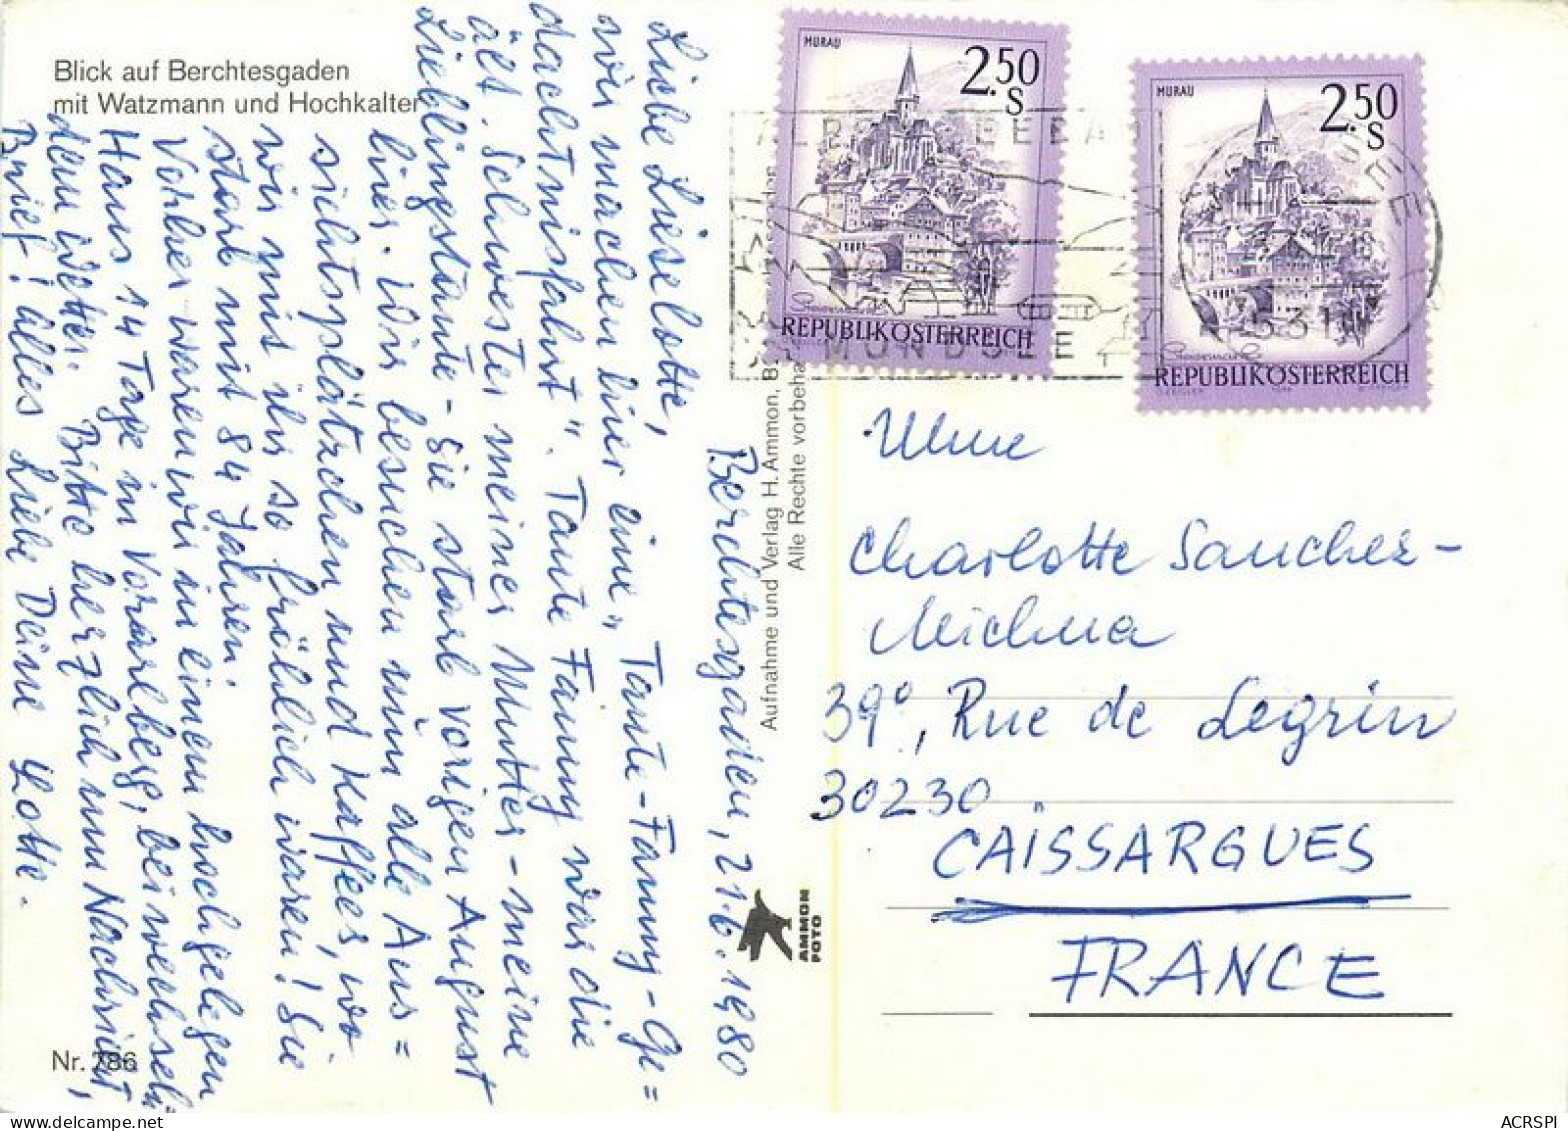 Blick auf Berchtesgaden
mit Watzmann und Hochkalter
Berchtesgaden, 21.6.1980
Liebe Lieselotte,
wir machen hier eine „Tante-Fanny-Ge=
dächtnisfahrt". Tante Fanny war die
ält. Schwester meiner Mutter - meine
Lieblingstante - sie starb vorigen August
hier. Wir besuchen nun alle Aus=
sichtsplätzchen und Kaffees, wo
wir mit ihr so fröhlich waren! Sie
starb mit 84 Jahren.
Vorher waren wir in einem hochgelegen
Haus 14 Tage in Vorarlberg, bei wechseln
dem Wetter. Bitte herzlich um Nachricht,
Brief! Alles Liebe Deine Lotte.
Nr. 786
Aufnahme und Verlag H. Ammon, B
Alle Rechte vorbeha
AMMON
FOTO
MURAU
2.50
S
REPUBLIK ÖSTERREICH
MURAU
2.50
S
REPUBLIK ÖSTERREICH
MONDSEE
Mme
Charlotte Sanchez-
Michna
39°, Rue de Legrin
30230
CAÏSSARGUES
FRANCE
ACRSPI